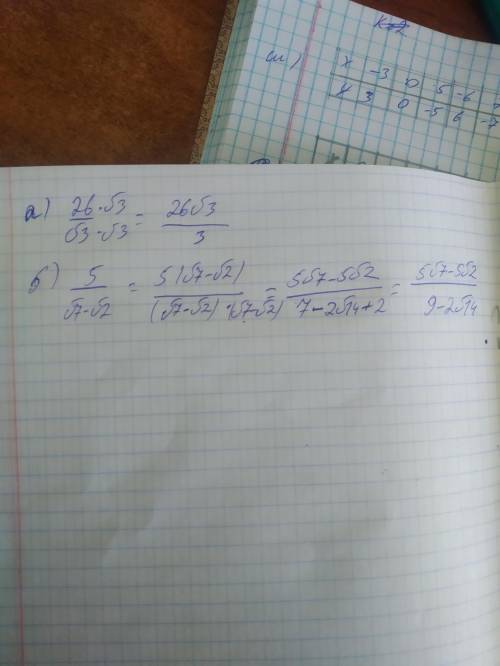 K=2
m)
x -3 0 5 -6
y 3 0 -5 6 -7
а) 26·√3/√3·√3 = 26√3/3
б) 5/√7-√2 = 5(√7-√2)/(√7-√2)·(√7-√2) = 5√7-5√2/7-2√14+2 = 5√7-5√2/9-2√14